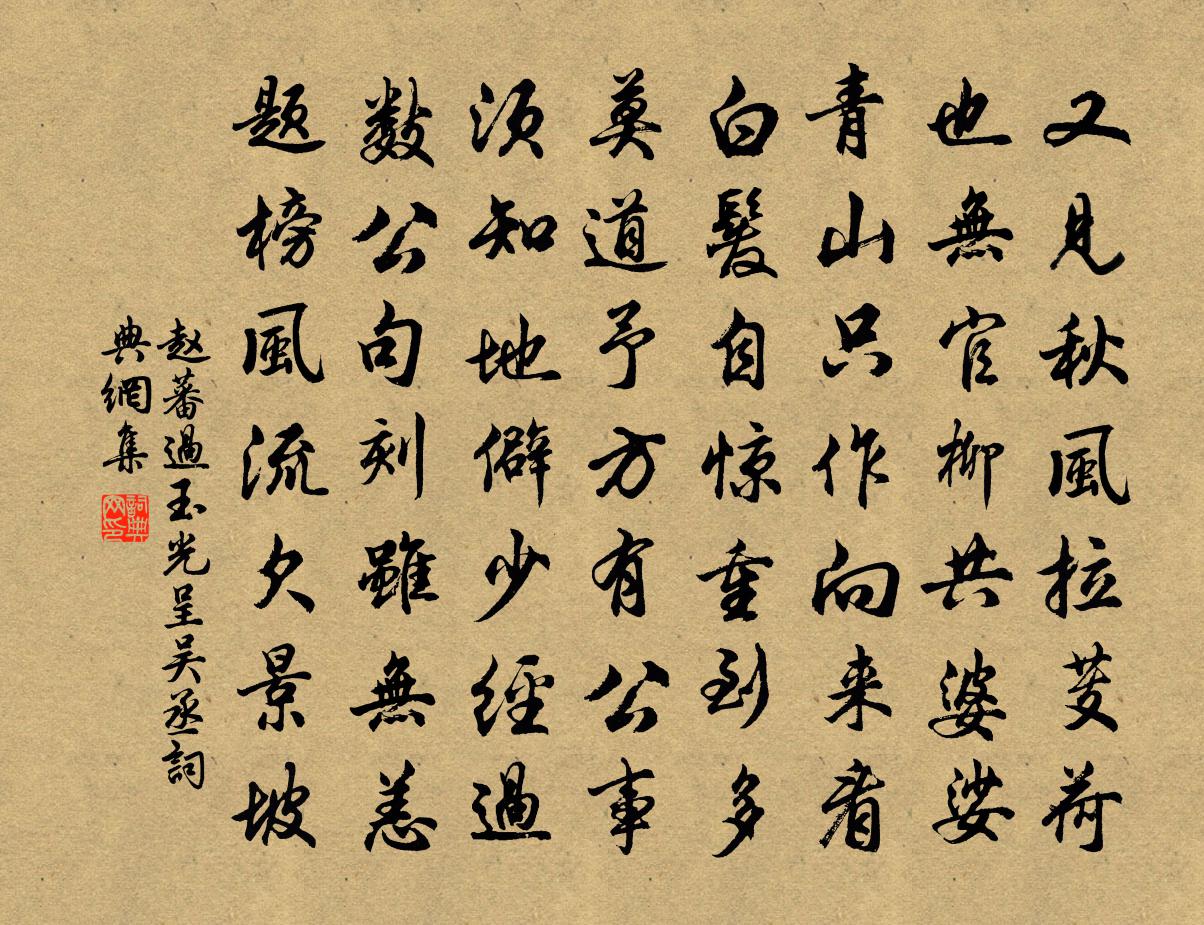 又見秋風拉芰荷
也無官柳共婆娑
青山只作向来看
白髮自惊重到多
莫道予方有公事
須知地僻少經過
數公句刻雖無恙
题榜風流欠景坡
赵蕃過玉光呈吴丞詞
典網集
詞典网印